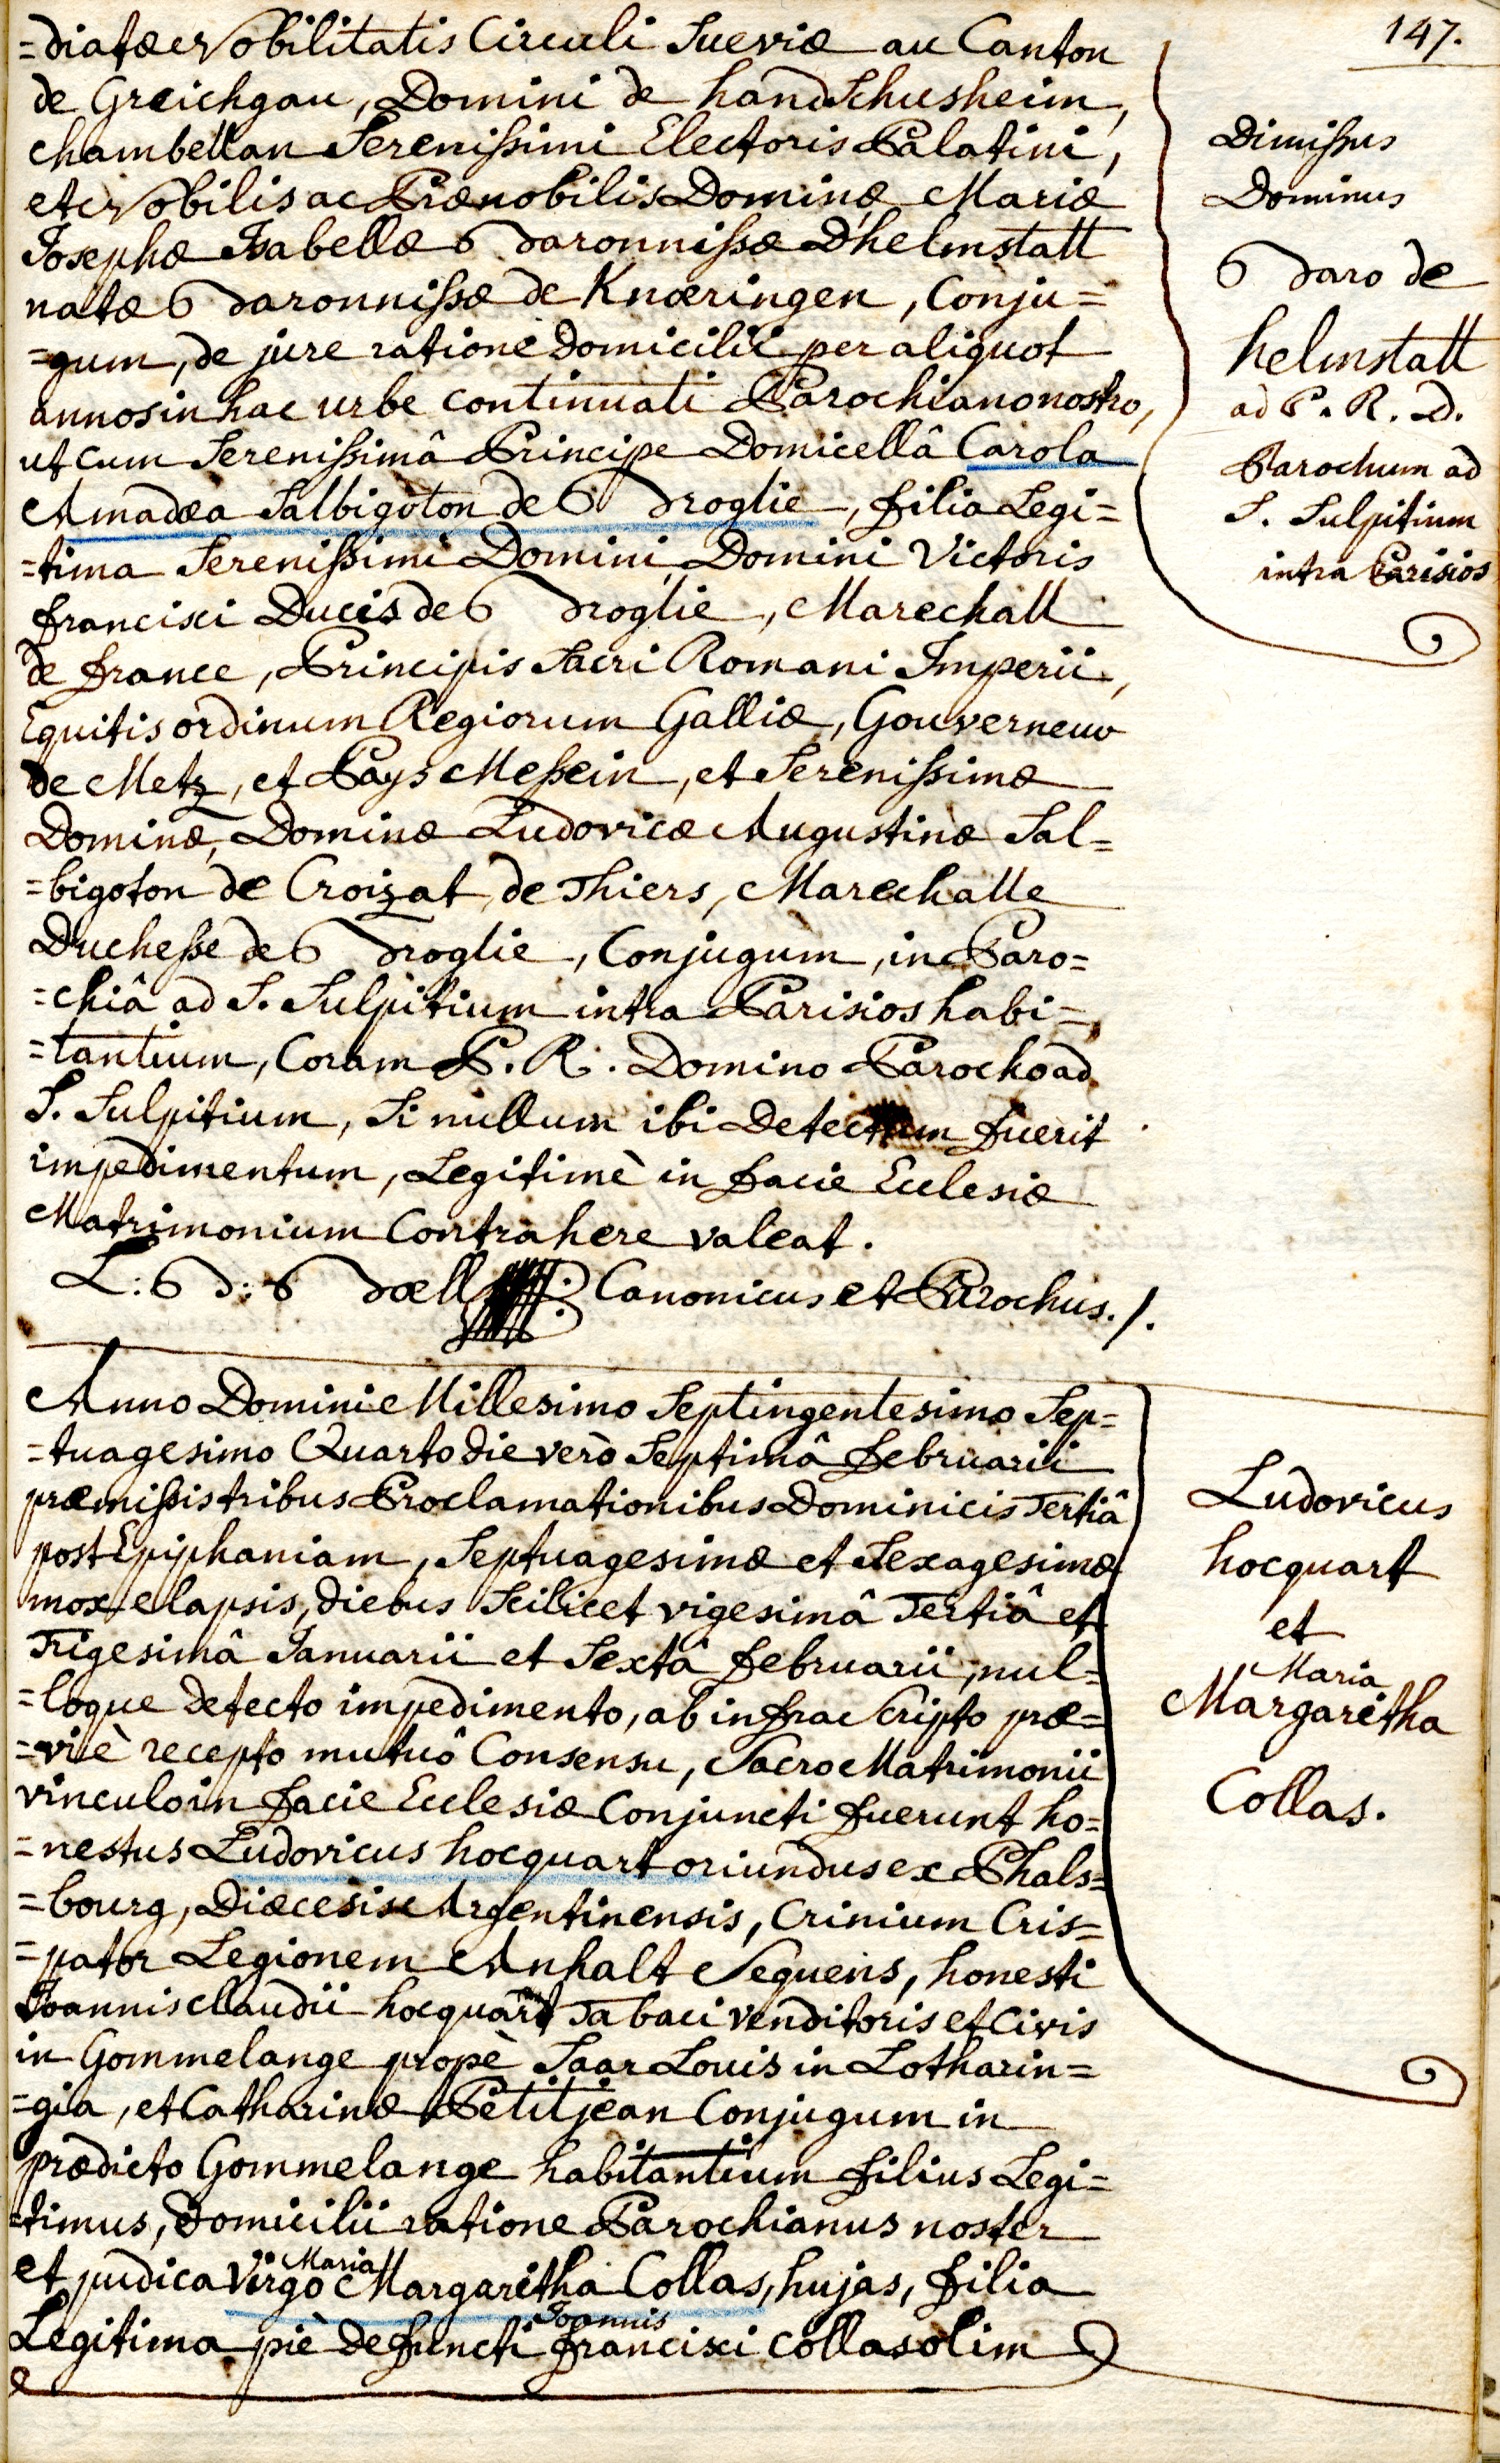 147.
=diatæ Nobilitatis Circuli Sueviæ au Canton
de Greichgau, Domini de handschusheim,
chambellan Serenissimi Electoris Palatini,
et Nobilis ac Prænobilis Dominæ Mariæ
Josephæ Isabellæ Baronnissæ D'helmstatt
natæ Baronnissæ de Knœringen, Conju=
=gum, de jure ratione Domicilii per aliquot
annos in hac urbe continuati Parochiano nostro,
ut cum Serenissimâ Principe Domicellâ Carola
Amadæa Salbigoton de Broglie, filia Legi=
=tima Serenissimi Domini, Domini Victoris
francisci Ducis de Broglie, Marechall
de france, Principis Sacri Romani Imperii,
Equitis ordinum Regiorum Galliæ, Gouverneur
de Metz, et Pays Messein, et Serenissimæ
Dominæ, Dominæ Ludovicæ Augustinæ Sal=
=bigoton de Croizat de Thiers, Marechalle
Duchesse de Broglie, Conjugum, in Paro=
=chiâ ad S. Sulpitium intra Parisios habi=
=tantium, Coram P. R. Domino Parocho ad
S. Sulpitium, Si nullum ibi Detectum fuerit
impedimentum, Legitimè in facie Ecclesiæ
Matrimonium Contrahere valeat.
L: B: Bœll Canonicus et Parochus./.
Dimissus
Dominus
Baro de
helmstatt
ad P. R. D.
Parochum ad
S. Sulpitium
intra Parisios
Anno Domini Millesimo Septingentesimo Sep=
=tuagesimo Quarto die verò Septimâ februarii
præmissis tribus Proclamationibus Dominicis Tertiâ
post Epiphaniam, Septuagesimæ et Sexagesimæ
mox elapsis, diebus Scilicet vigesimâ Tertiâ et
Trigesimâ Januarii et Sextâ februarii, nul=
=loque detecto impedimento, ab infra Scripto præ=
=viè recepto mutuô Consensu, Sacro Matrimonii
vinculo in facie Ecclesiæ Conjuncti fuerunt ho=
=nestus Ludovicus hocquart oriundus ex Phals=
=bourg, Diœcesis Argentinensis, Crinium Cris=
=pator Legionem Anhalt Sequens, honesti
Joannis Claudii hocquart Tabaci venditoris et Civis
in Gommelange propè Saar Louis in Lotharin=
=gia, et Catharinæ Petitjean Conjugum in
prædicto Gommelange habitantium filius Legi=
=timus, Domicilii ratione Parochianus noster
et pudica Virgo Maria Margaritha Collas, hujas, filia
Legitima piè defuncti Joannis francisci Collas olim
Ludovicus
hocquart
et
Maria
Margaretha
Collas.